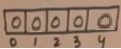 0 0 0 0 0
0 1 2 3 4